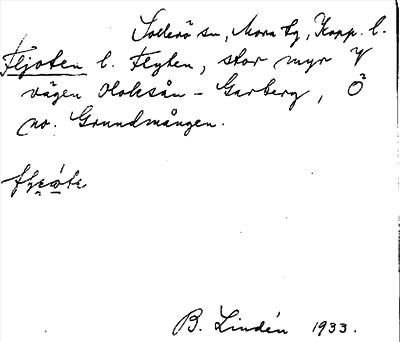 Sollerö sn, Mora tg, Kopp. l.
Fljoten l. Flyten, stor myr V
vägen Oloksån – Garberg, Ö
no. Grundmången.
B. Lindén 1933.